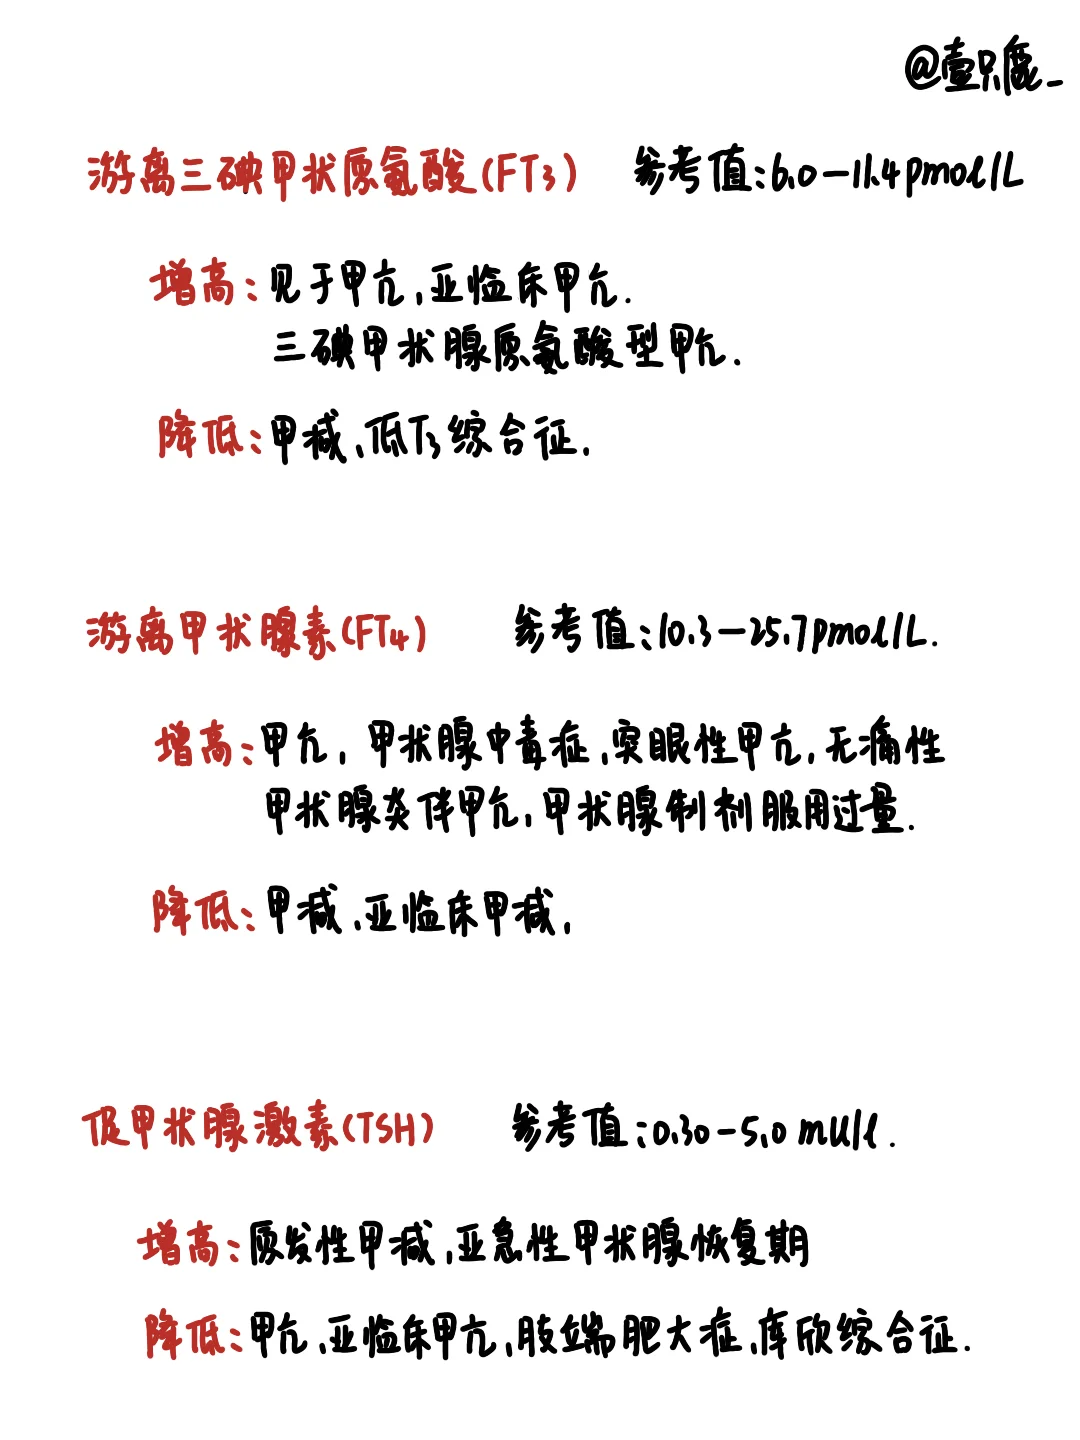 @壹只鹿_
游离三碘甲状原氨酸(FT3) 参考值:6.0-11.4pmol/L
增高:见于甲亢,亚临床甲亢.
三碘甲状腺原氨酸型甲亢.
降低:甲减、低T3综合征.
游离甲状腺素(FT4) 参考值:10.3-25.7pmol/L.
增高:甲亢,甲状腺中毒症,突眼性甲亢,无痛性
甲状腺炎伴甲亢,甲状腺制剂服用过量.
降低:甲减、亚临床甲减,
促甲状腺激素(TSH) 参考值:0.30-5.0mU/l.
增高:原发性甲减,亚急性甲状腺恢复期
降低:甲亢、亚临床甲亢,肢端肥大症、库欣综合征.